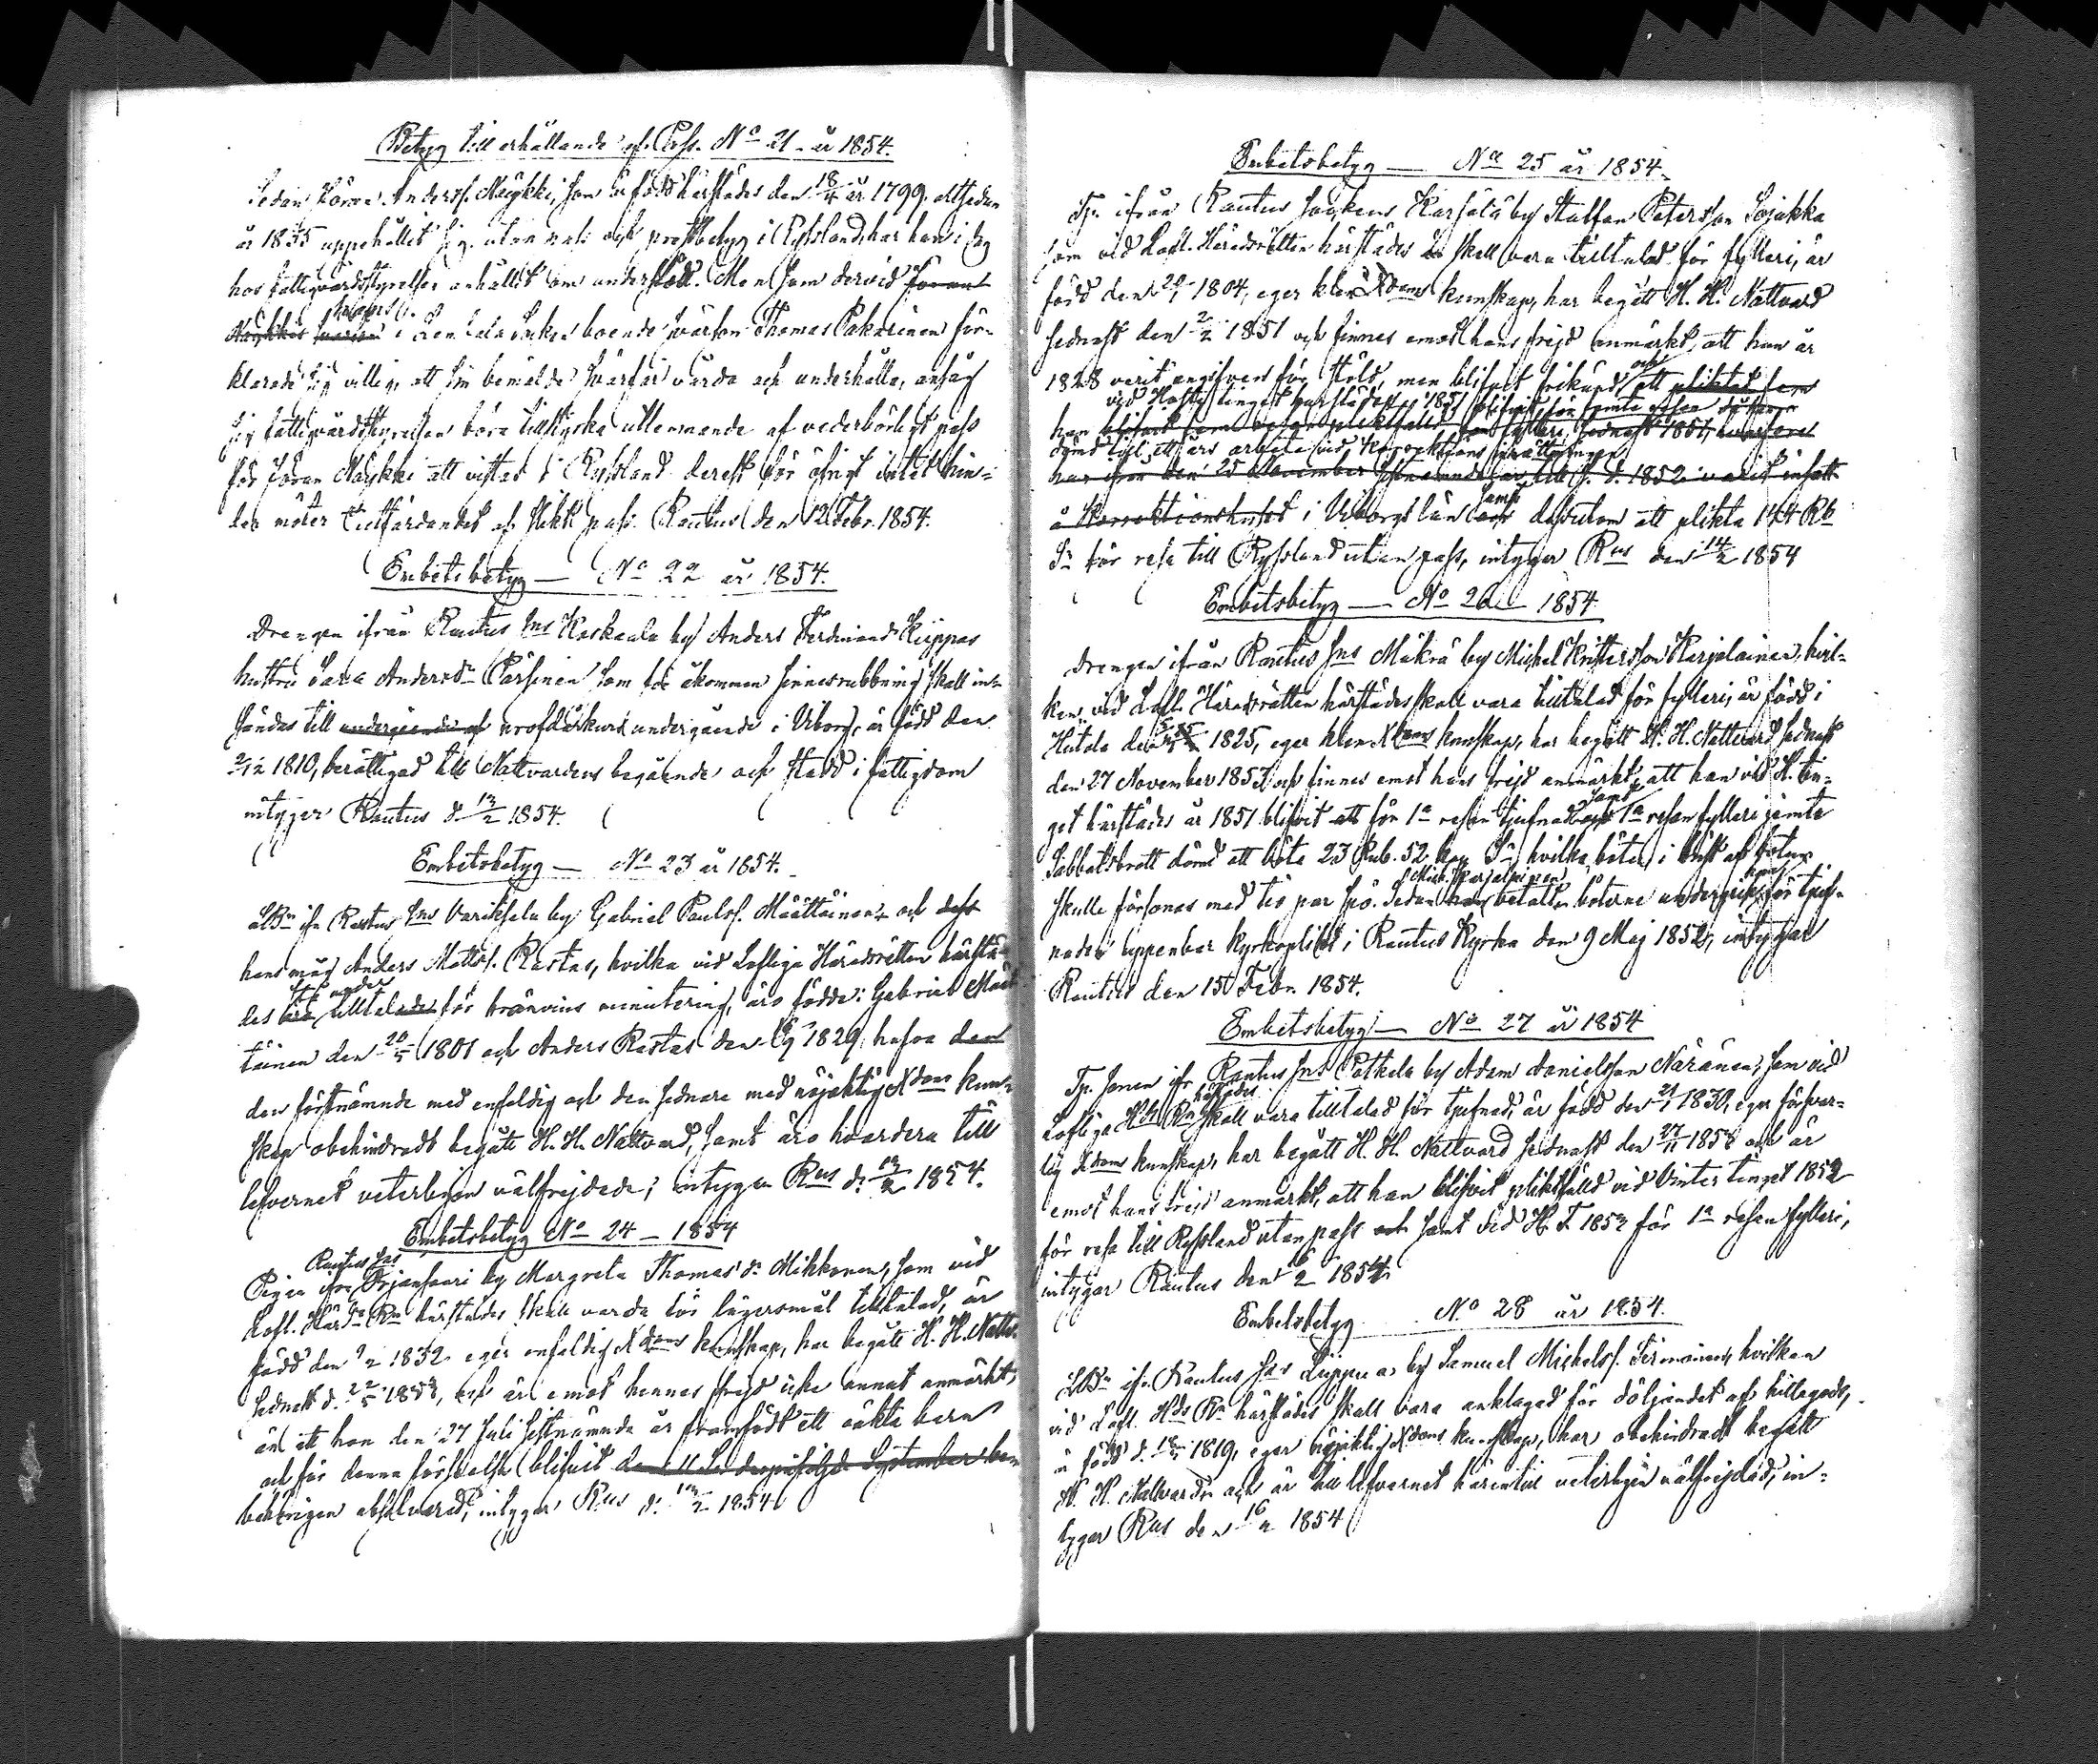 Betyg till erhållande af Pass. No 21 år 1854.
Sedan Göran Anderss. Näykki, som är född härstädes den 18/4 år 1799. alltsedan
år 1835 uppehållit sig utan pass och prestbetyg i Ryssland, har han i dag
hos fattigvårdsstyrelsen anhållit om understöd. Men som dervid Göran
Näykkis i boende svärson Thomas Pakarinen för-
klarade sig villig att sin bemälde svärfar vårda och underhålla, ansåg
sig fattigvårdsstyrelsen böra tillstyrka utlemnande af vederbörligt pass
för Göran Näykki att vistas i Ryssland derest för öfrigt intet hin-
der möter utfärdandet af slikt pass. Rautus den 12 Febr. 1854.
Embetsbetyg — No 22 år 1854.
Drengen ifrån Rautus Sns Haskaala by Anders Ferdinand Kiippas
hustru Sara Andersdr Pärsinen som för åkommen sinnesrubbning skall in-
sändas till undergående af profårskurs undergående i Viborg, är född den
2/12 1810, berättigad till Nattvardens begående och stadd i fattigdom
intygar Rautus d. 13/2 1854.
Embetsbetyg — No 23 år 1854.
LBn ifn Rautus Sns Variksela by Gabriel Paulss. Määttäinen och dess
hans måg Anders Mattss. Rastas, hvilka vid Lofliga Häradsrätten härstä-
des äro tilltalade för bränvins minutering, äro födde: Gabriel Määt-
täinen den 20/5 1801 och Anders Rastas den 1829, hafva den
den förstnämnde med enfaldig och den sednare med nöjaktig Xdoms kun-
skap obehindradt begått H. H. Nattvard, samt äro hvardera till
lefvernet veterligen välfrejdade; intygar Rus d. 13/2 1854.
Embetsbetyg No 24 — 1854
Rautus Sns
Pigan ifrån Orjansaari by Margreta Thomasdr Mikkonen, som vid
Lofl. Härds Rn härstädes skall varda för lägersmål tilltalad, är
född den 9/2 1832 eger enfaldig Xdoms kunskap, har begått H. H. Nattv.
sednast d. 22/5 1853, och är emot hennes frejd icke annat anmärkt,
än att hon den 27 Juli sistnämnde år framfödt ett oäkta barn
och för denna förseelse blifvit den 11 derpåföljde September
behörigen absolverad, intygar Rus d. 13/2 1854.
Embetsbetyg — No 25 år 1854.
Tp. ifrån Rautus Sockens Karhola by Staffan Petersson Sojakka
som vid Lofl. Häradsrätten härstädes skall vara tilltalad för fylleri, är
född den 29/1 1804, eger klen Xdoms kunskap, har begått H. H. Nattvard
sednast den 2/2 1851 och finnes emot hans frejd anmärkt, att han år
1828 varit angifven för stöld, men blifvit frikänd, och att pliktat fem
vid Höste tinget härstädes 1851 blifvit för femte resan fylleri
han blifvit fem resor pliktfälld för fylleri sednast 1851, hvarföre
dömd till ett års arbete vid Korrektions inrättningen
har ifrån den 25 November sistnämnde år till s. d. 1852 varit insatt
å Korrektionshuset i Viborgs län och samt dessutom att plikta 14,4 Rb
Sr för resa till Ryssland utan pass, intygar Rus den 14/2 1854
Embetsbetyg — No 26 — 1854
Drengen ifrån Rautus Sns Mäkrä by Michel Kristersson Karjalainen, hvil-
ken vid Lofl. Häradsrätten härstädes skall vara tilltalad för fylleri, är född i
Hiitola den 1825, eger klen Xdoms kunskap, har begått H. H. Nattvard sednast
den 27 November 1853 och finnes emot hans frejd anmärkt, att han vid H. tin-
get härstädes år 1851 blifvit för 1a resan tjufnad och samt 1a resan fylleri jemte
Sabbatsbrott dömd att böta 23 Rub. 52 kop. Sr hvilka böter i brist af botum
skulle försonas med tio par spö. Sedan Mich. Karjalainen betalt böterne undergick han för tjuf-
naden uppenbar kyrkoplikt i Rautus Kyrka den 9 Maj 1852, intygar
Rautus den 15 Febr. 1854.
Embetsbetyg — No 27 år 1854
Tp. sonen ifr Rautus Sns Potkela by Adam Danielsson Näränen, som vid
Lofliga Hds Rn härstädes skall vara tilltalad för tjufnad, är född den 21/1 1830, eger försvar-
lig Xdoms kunskap, har begått H. H. Nattvard sednast den 27/11 1853 och är
emot hans frejd anmärkt, att han blifvit pliktfälld vid Vintertinget 1852
för resa till Ryssland utan pass och samt vid H. T. 1853 för 1a resan fylleri,
intygar Rautus den 16/2 1854.
Embetsbetyg No 28 år 1854.
LBn ifr. Rautus Sns Leippua by Samuel Michelss. Termonen, hvilken
vid Lofl. Hds Rn härstädes skall vara anklagad för döljandet af hittegods,
är född d. 1819, eger nöjaktig Xdoms kunskap, har obehindradt begått
H. H. Nattvard och är till lefvernet härintill veterligen välfrejdad, in-
tygar Rus den 16/2 1854